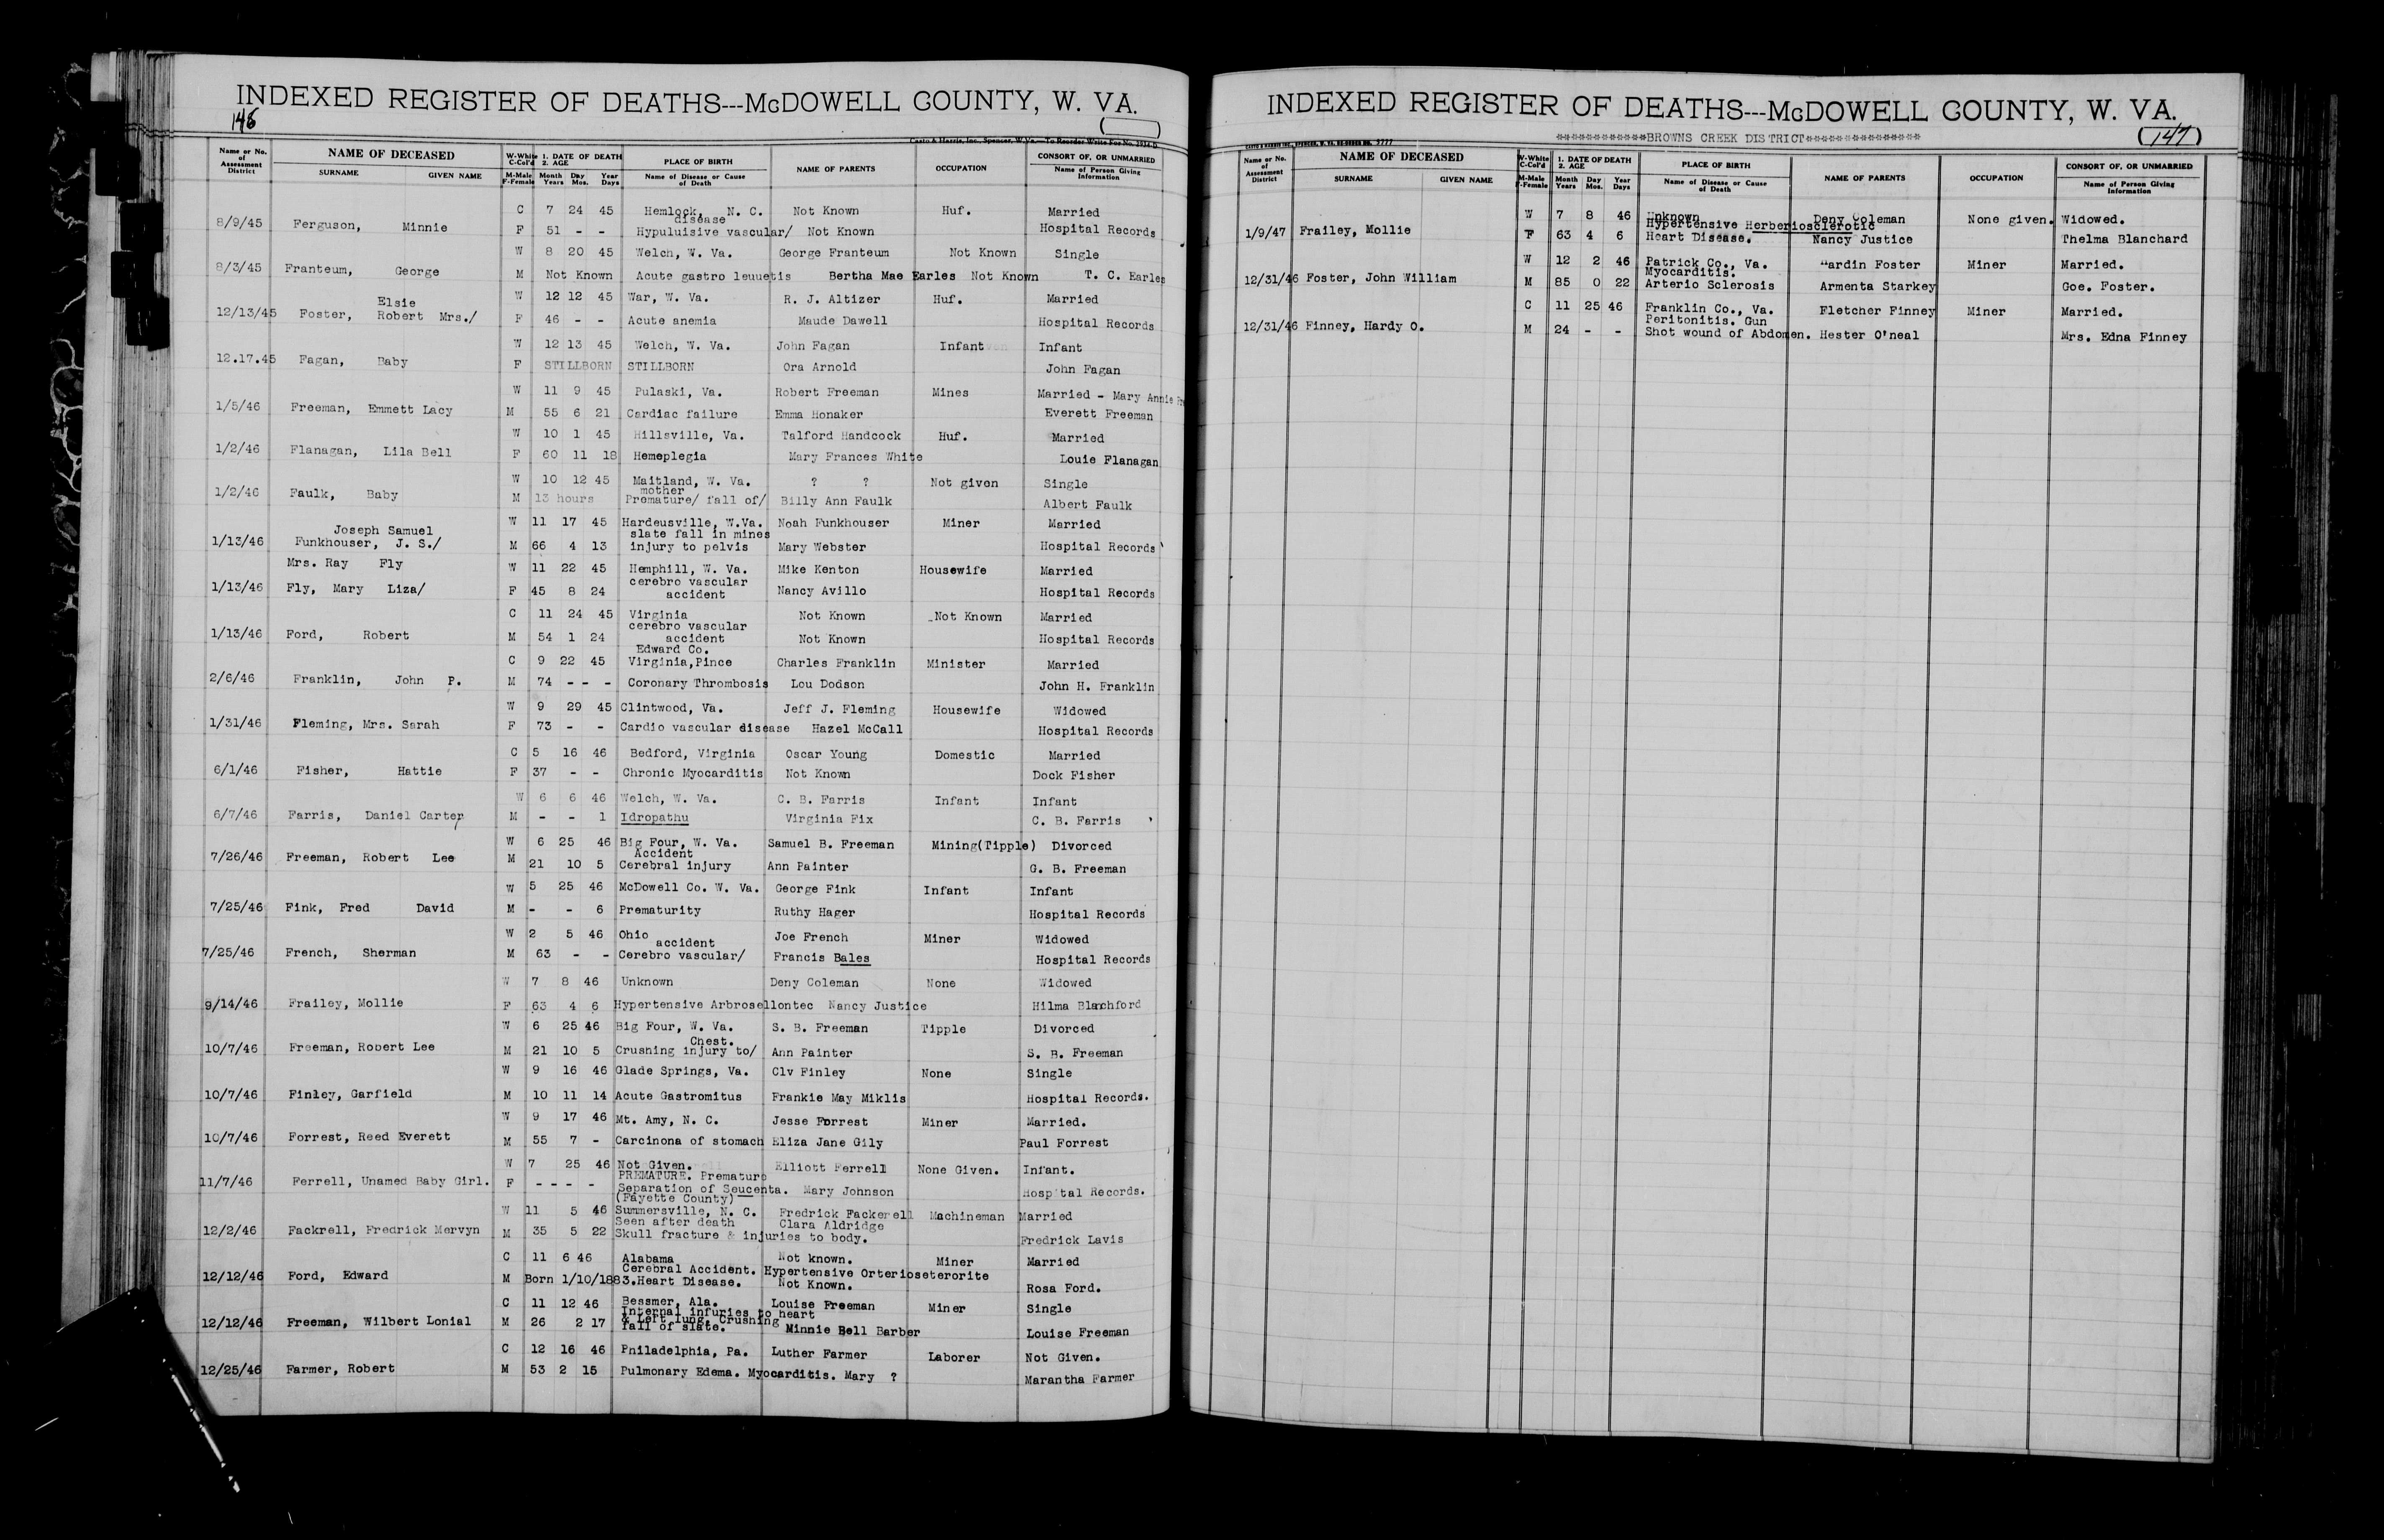 INDEXED REGISTER OF DEATHS---McDOWELL COUNTY, W. VA.
146
Casto & Harris, Inc., Spencer, W. Va.—To Reorder Write For No.
Name or No. of Assessment District
NAME OF DECEASED
SURNAME GIVEN NAME
W-White C-Col'd M-Male F-Female
1. DATE OF DEATH 2. AGE
Month Day Year
Years Mos. Days
PLACE OF BIRTH
Name of Disease or Cause of Death
NAME OF PARENTS
OCCUPATION
CONSORT OF, OR UNMARRIED
Name of Person Giving Information
C 7 24 45 Hemlock, N. C. Not Known Huf. Married
disease
8/9/45 Ferguson, Minnie F 51 - - Hypuluisive vascular/ Not Known Hospital Records
W 8 20 45 Welch, W. Va. George Franteum Not Known Single
8/3/45 Franteum, George M Not Known Acute gastro leuuetis Bertha Mae Earles Not Known T. C. Earles
Elsie W 12 12 45 War, W. Va. R. J. Altizer Huf. Married
12/13/45 Foster, Robert Mrs./ F 46 - - Acute anemia Maude Dawell Hospital Records
W 12 13 45 Welch, W. Va. John Fagan Infant Infant
12.17.45 Fagan, Baby F STILLBORN STILLBORN Ora Arnold John Fagan
W 11 9 45 Pulaski, Va. Robert Freeman Mines Married - Mary Annie
1/5/46 Freeman, Emmett Lacy M 55 6 21 Cardiac failure Emma Honaker Everett Freeman
W 10 1 45 Hillsville, Va. Talford Handcock Huf. Married
1/2/46 Flanagan, Lila Bell F 60 11 18 Hemeplegia Mary Frances White Louie Flanagan
W 10 12 45 Maitland, W. Va. ? ? Not given Single
mother
1/2/46 Faulk, Baby M 13 hours Premature/ fall of/ Billy Ann Faulk Albert Faulk
Joseph Samuel W 11 17 45 Hardeusville, W.Va. Noah Funkhouser Miner Married
slate fall in mines
1/13/46 Funkhouser, J. S./ M 66 4 13 injury to pelvis Mary Webster Hospital Records
Mrs. Ray Fly W 11 22 45 Hemphill, W. Va. Mike Kenton Housewife Married
cerebro vascular
1/13/46 Fly, Mary Liza/ F 45 8 24 accident Nancy Avillo Hospital Records
C 11 24 45 Virginia Not Known Not Known Married
cerebro vascular
1/13/46 Ford, Robert M 54 1 24 accident Not Known Hospital Records
Edward Co.
C 9 22 45 Virginia,Pince Charles Franklin Minister Married
2/6/46 Franklin, John P. M 74 - - - Coronary Thrombosis Lou Dodson John H. Franklin
W 9 29 45 Clintwood, Va. Jeff J. Fleming Housewife Widowed
1/31/46 Fleming, Mrs. Sarah F 73 - - Cardio vascular disease Hazel McCall Hospital Records
C 5 16 46 Bedford, Virginia Oscar Young Domestic Married
6/1/46 Fisher, Hattie F 37 - - Chronic Myocarditis Not Known Dock Fisher
W 6 6 46 Welch, W. Va. C. B. Farris Infant Infant
6/7/46 Farris, Daniel Carter M - - 1 Idropathu Virginia Fix C. B. Farris
W 6 25 46 Big Four, W. Va. Samuel B. Freeman Mining(Tipple) Divorced
Accident
7/26/46 Freeman, Robert Lee M 21 10 5 Cerebral injury Ann Painter G. B. Freeman
W 5 25 46 McDowell Co. W. Va. George Fink Infant Infant
7/25/46 Fink, Fred David M - - 6 Prematurity Ruthy Hager Hospital Records
W 2 5 46 Ohio Joe French Miner Widowed
accident
7/25/46 French, Sherman M 63 - - Cerebro vascular/ Francis Bales Hospital Records
W 7 8 46 Unknown Deny Coleman None Widowed
9/14/46 Frailey, Mollie F 63 4 6 Hypertensive Arbrosellontec Nancy Justice Hilma Blachford
W 6 25 46 Big Four, W. Va. S. B. Freeman Tipple Divorced
Chest.
10/7/46 Freeman, Robert Lee M 21 10 5 Crushing injury to/ Ann Painter S. B. Freeman
W 9 16 46 Glade Springs, Va. Clv Finley None Single
10/7/46 Finley, Garfield M 10 11 14 Acute Gastromitus Frankie May Miklis Hospital Records.
W 9 17 46 Mt. Amy, N. C. Jesse Forrest Miner Married.
10/7/46 Forrest, Reed Everett M 55 7 - Carcinona of stomach Eliza Jane Gily Paul Forrest
W 7 25 46 Not Given. Elliott Ferrell None Given. Infant.
PREMATURE. Premature
11/7/46 Ferrell, Unamed Baby Girl. F - - - - Separation of Seucenta. Mary Johnson Hospital Records.
(Fayette County)
W 11 5 46 Summersville, N. C. Fredrick Fackerell Machineman Married
Seen after death Clara Aldridge
12/2/46 Fackrell, Fredrick Mervyn M 35 5 22 Skull fracture & injuries to body. Fredrick Lavis
C 11 6 46 Alabama Not known. Miner Married
Cerebral Accident. Hypertensive Orterioseterorite
12/12/46 Ford, Edward M Born 1/10/1883. Heart Disease. Not Known. Rosa Ford.
C 11 12 46 Bessmer, Ala. Louise Freeman Miner Single
Internal infuries to heart
12/12/46 Freeman, Wilbert Lonial M 26 2 17 & Left lung, Crushing
fall of slate. Minnie Bell Barber Louise Freeman
C 12 16 46 Philadelphia, Pa. Luther Farmer Laborer Not Given.
12/25/46 Farmer, Robert M 53 2 15 Pulmonary Edema. Myocarditis. Mary ? Marantha Farmer
INDEXED REGISTER OF DEATHS---McDOWELL COUNTY, W. VA.
************BROWNS CREEK DISTRICT***************
(147)
Name or No. of Assessment District
NAME OF DECEASED
SURNAME GIVEN NAME
W-White C-Col'd M-Male F-Female
1. DATE OF DEATH 2. AGE
Month Day Year
Years Mos. Days
PLACE OF BIRTH
Name of Disease or Cause of Death
NAME OF PARENTS
OCCUPATION
CONSORT OF, OR UNMARRIED
Name of Person Giving Information
W 7 8 46 Unknown Deny Coleman None given. Widowed.
Hypertensive Herberiosclerotic
1/9/47 Frailey, Mollie F 63 4 6 Heart Disease. Nancy Justice Thelma Blanchard
W 12 2 46 Patrick Co., Va. Hardin Foster Miner Married.
Myocarditis.
12/31/46 Foster, John William M 85 0 22 Arterio Sclerosis Armenta Starkey Goe. Foster.
C 11 25 46 Franklin Co., Va. Fletcher Finney Miner Married.
Peritonitis. Gun
12/31/46 Finney, Hardy O. M 24 - - Shot wound of Abdomen. Hester O'neal Mrs. Edna Finney